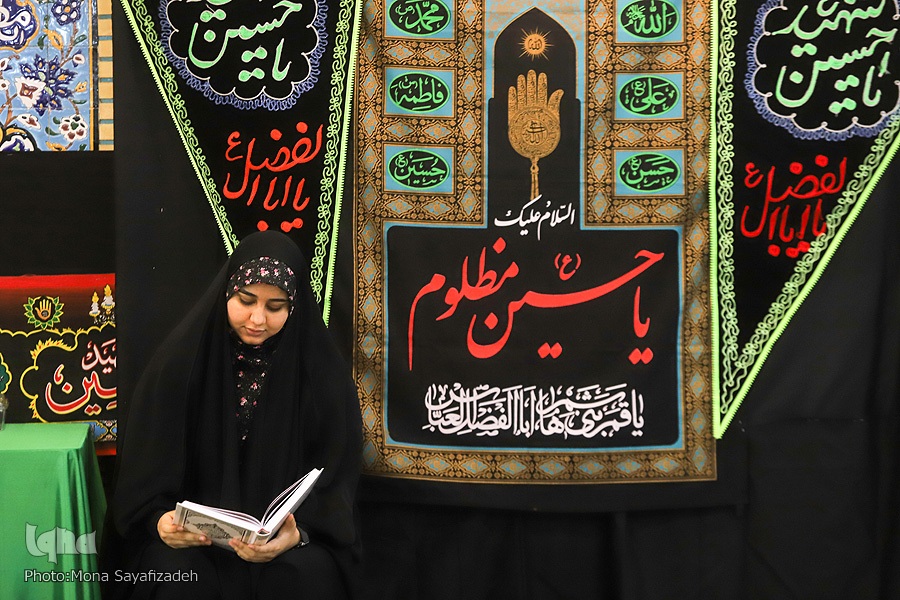 یا حسین
یا اباالفضل ع
محمد
فاطمه ع
حسین ع
الله
علی ع
حسن ع
السّلام علیک
یا حسین (ع) مظلوم
یا قمر بنی هاشم، اباالفضل العباس
شهید
یا حسین
یا اباالفضل ع
iqna
Photo:Mona Sayafizadeh